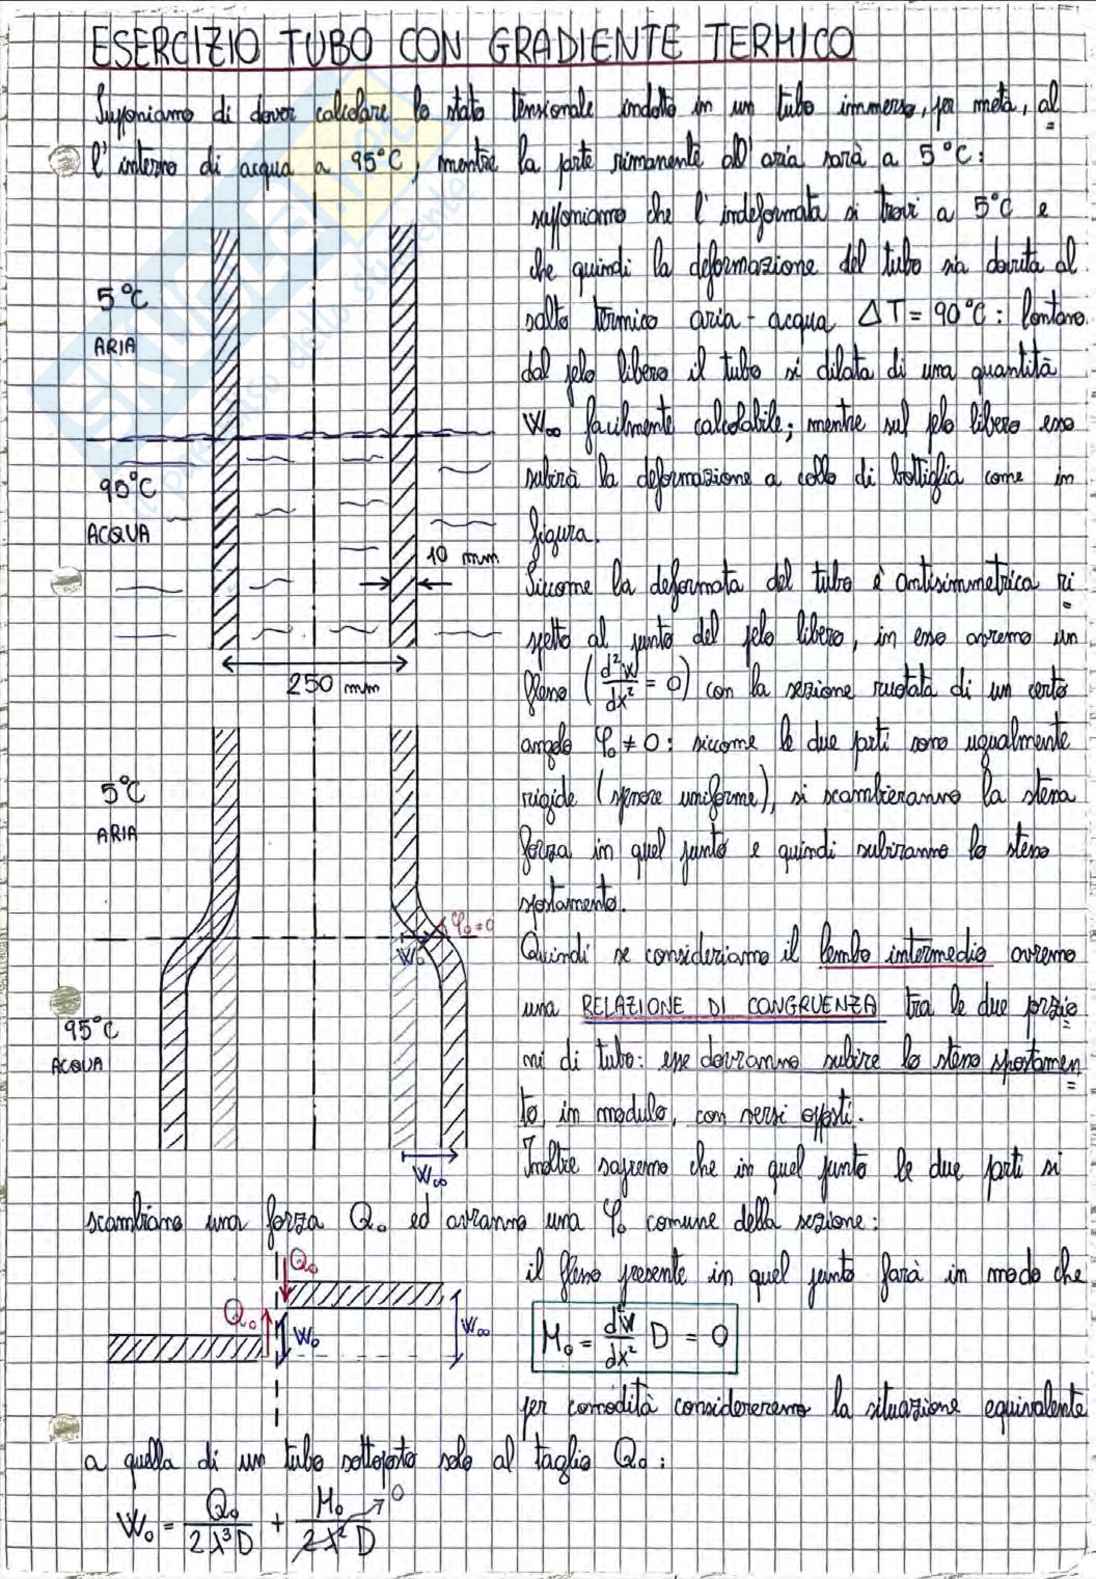 ESERCIZIO TUBO CON GRADIENTE TERMICO
Supponiamo di dover calcolare lo stato tensionale indotto in un tubo immerso, per metà, al
l'interno di acqua a 95°C, mentre la parte rimanente all'aria sarà a 5°C:
supponiamo che l'indeformata si trovi a 5°C e
che quindi la deformazione del tubo sia dovuta al
salto termico aria-acqua ΔT = 90°C: lontano
dal pelo libero il tubo si dilata di una quantità
W∞ facilmente calcolabile; mentre sul pelo libero esso
subirà la deformazione a collo di bottiglia come in
figura.
5°C
ARIA
90°C
ACQUA
10 mm
250 mm
Siccome la deformata del tubo è antisimmetrica ri
spetto al punto del pelo libero, in esso avremo un
flesso (d²w/dx² = 0) con la sezione ruotata di un certo
angolo φ₀ ≠ 0: siccome le due parti sono ugualmente
rigide (spessore uniforme), si scambieranno la stessa
forza in quel punto e quindi subiranno lo stesso
spostamento.
5°C
ARIA
φ₀=0
W₀
95°C
ACQUA
W∞
Quindi se consideriamo il lembo intermedio avremo
una RELAZIONE DI CONGRUENZA tra le due porzio
ni di tubo: esse dovranno subire lo stesso spostamen
to, in modulo, con versi opposti.
Inoltre sapremo che in quel punto le due parti si
scambiano una forza Q₀ ed avranno una φ₀ comune della sezione:
Q₀
Q₀
W₀
W∞
il flesso presente in quel punto farà in modo che
M₀ = d²w/dx² D = 0
per comodità considereremo la situazione equivalente
a quella di un tubo sottoposto solo al taglio Q₀:
W₀ = Q₀/2λ³D + M₀/2λ²D → 0